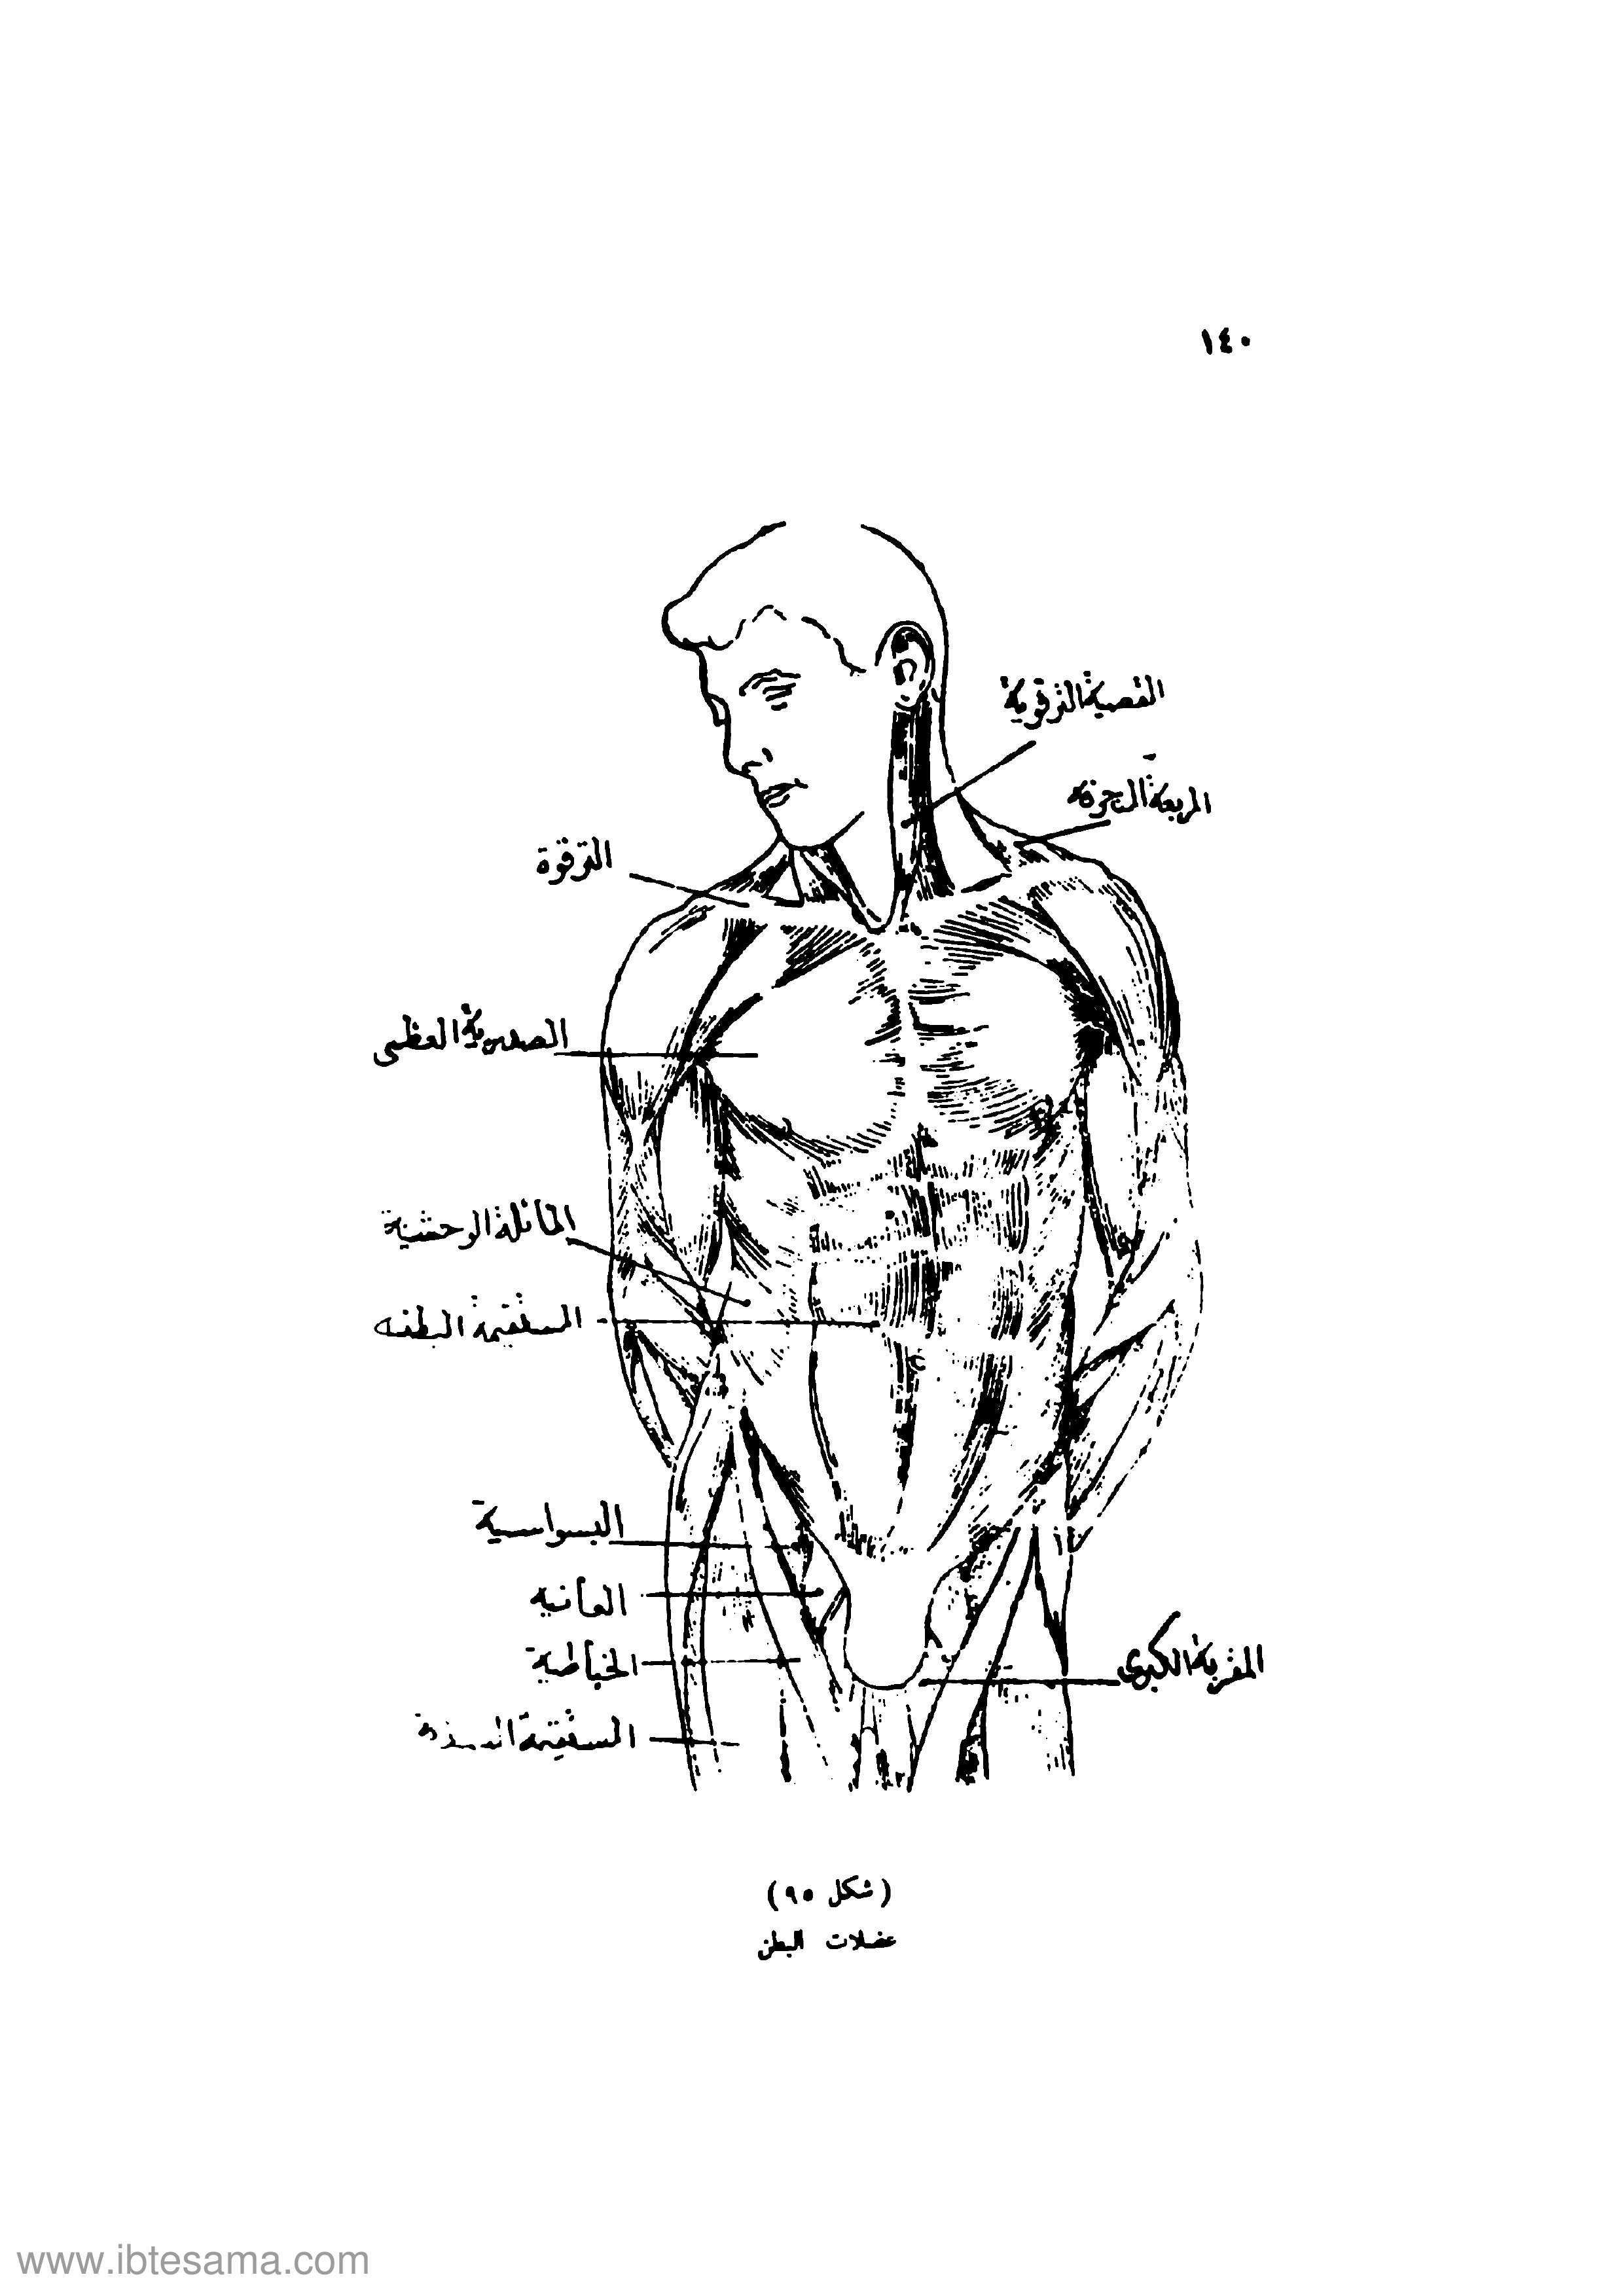 ١٤٠
القصية الترقوية
المربعة المنحرفة
الترقوة
الصدرية العظمى
المائلة الوحشية
المستقيمة البطنية
البسواسية
العانية
الخياطية
المقربة الكبرى
المستقيمة
(شكل ٩٥)
عضلات البطن
www.ibtesama.com